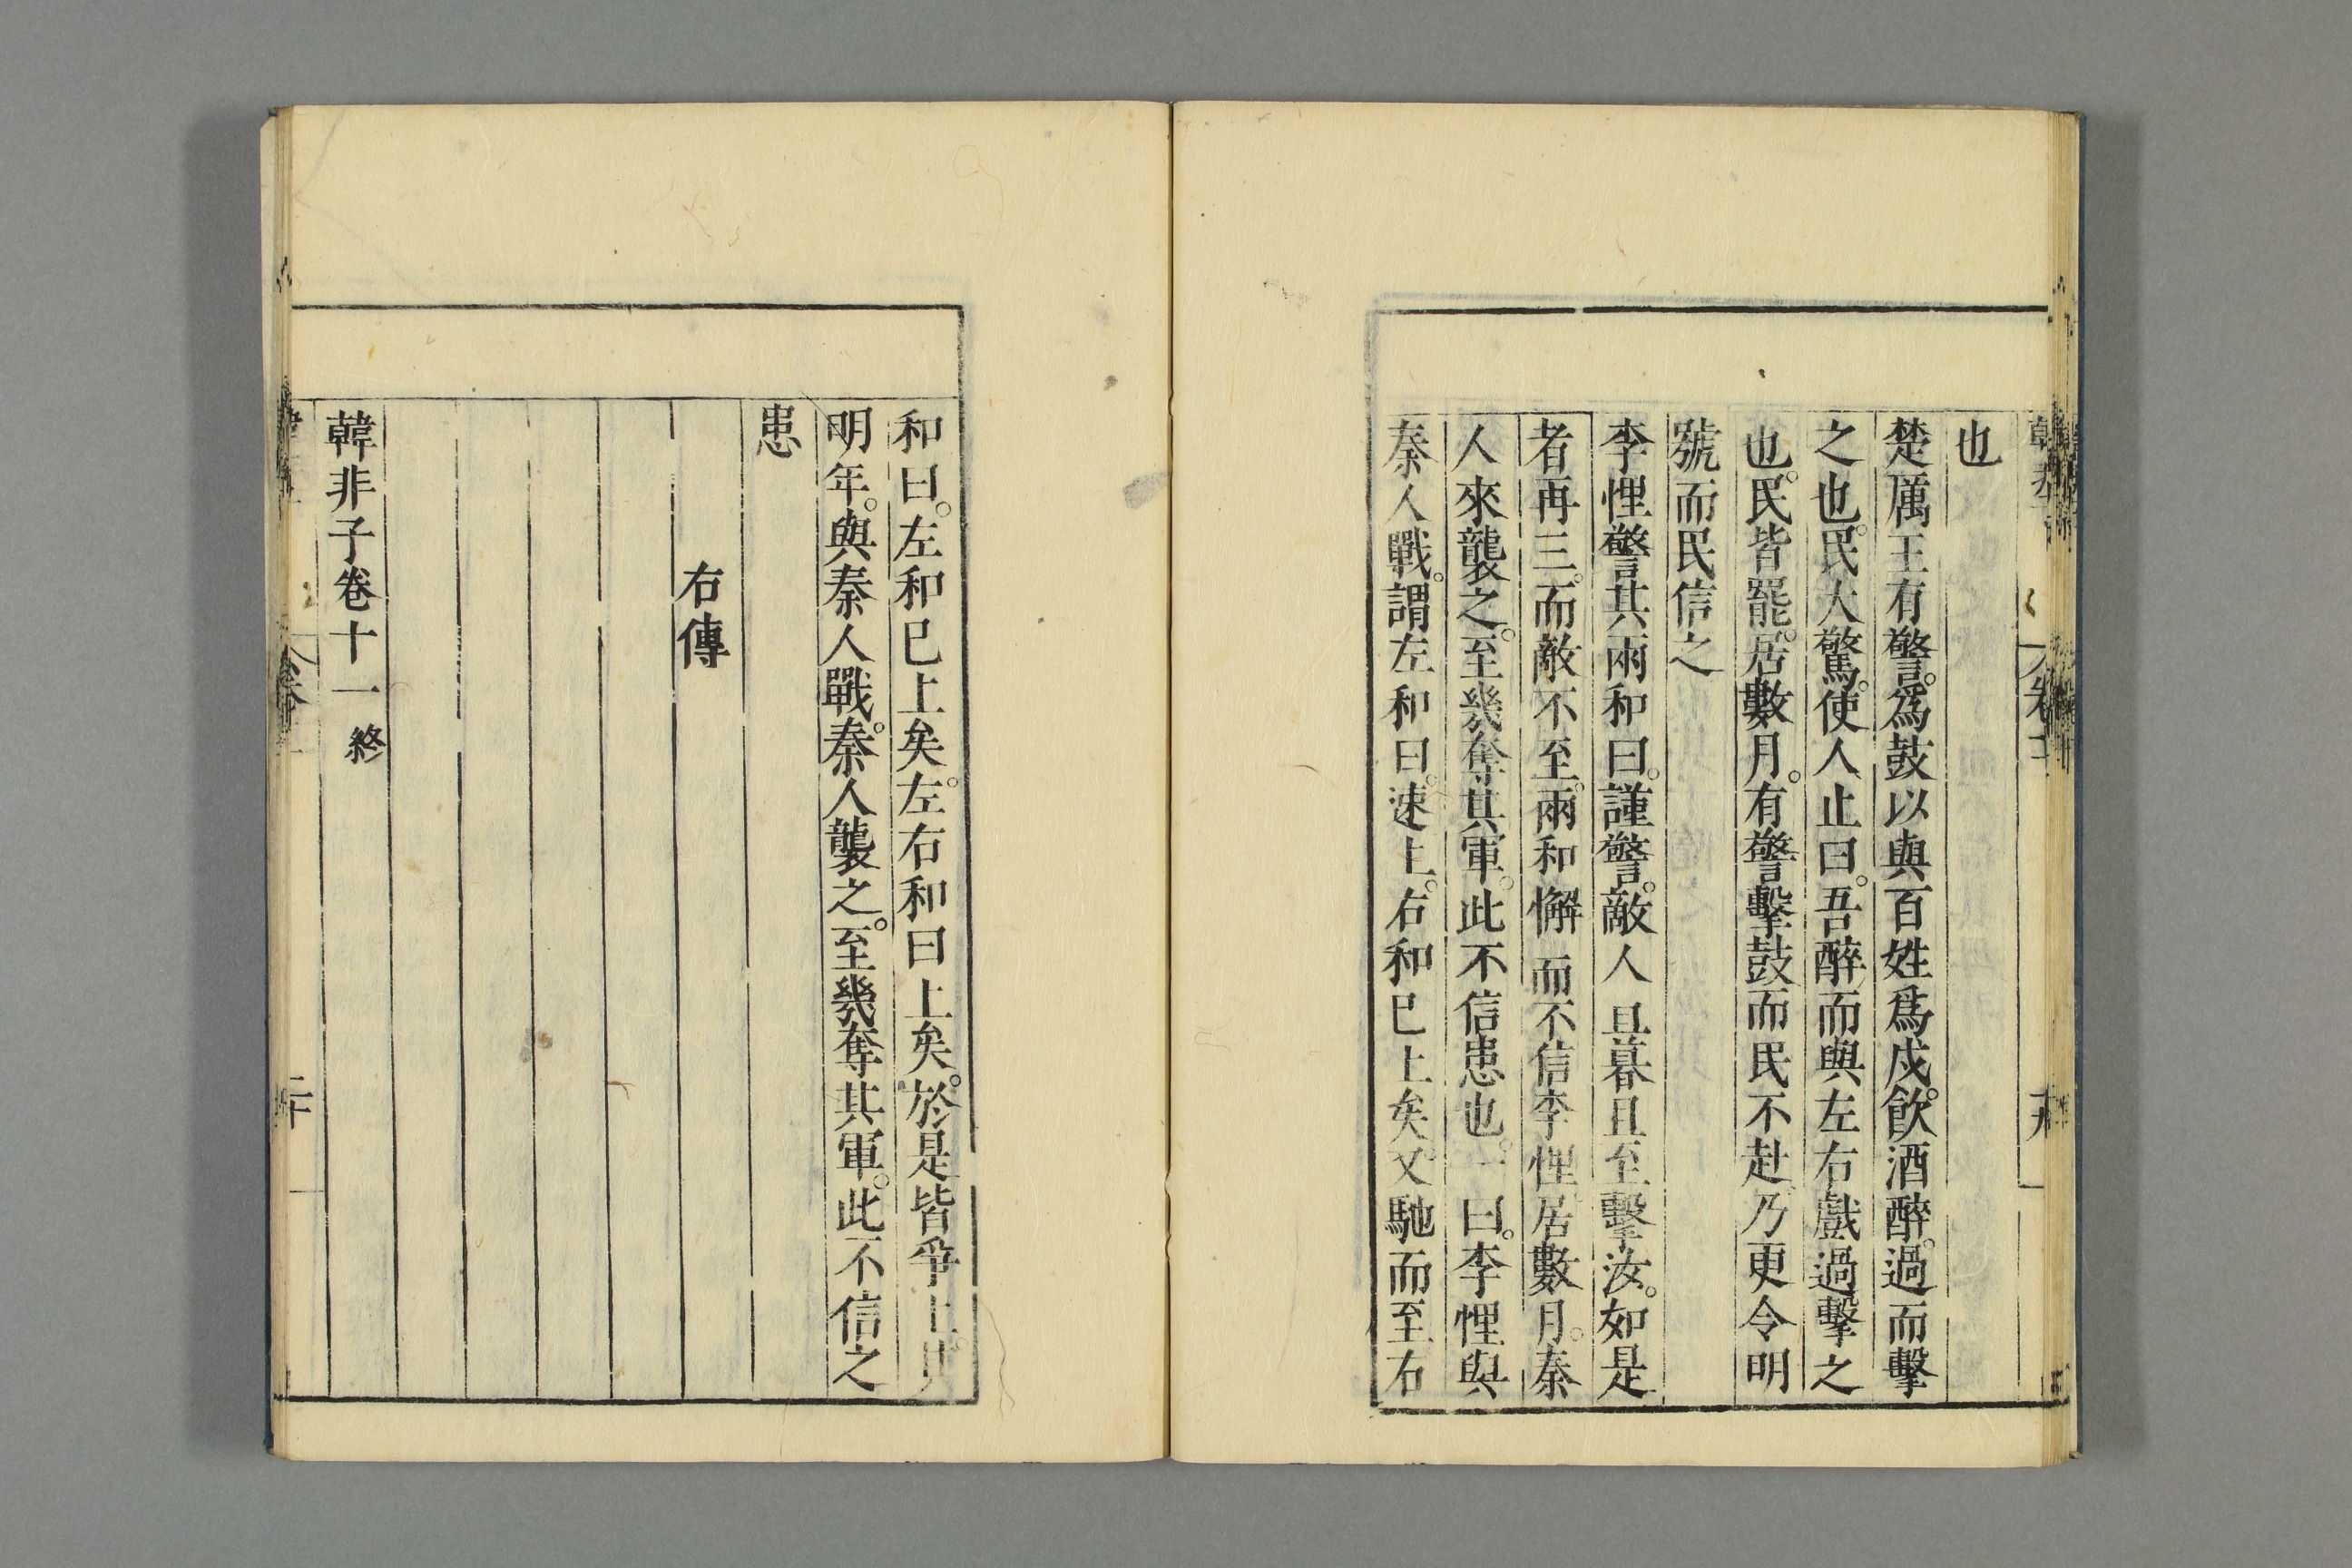 也
楚厲王有警。爲鼓以與百姓爲戍。飲酒醉。過而擊
之也。民大驚。使人止曰。吾醉而與左右戲過擊之
也。民皆罷。居數月。有警擊鼓而民不赴。乃更令明
號而民信之
李悝警其兩和曰。謹警。敵人且暮且至擊汝。如是
者再三。而敵不至。兩和懈而不信李悝居數月。秦
人來襲之。至幾奪其軍。此不信患也。一曰。李悝與
秦人戰。謂左和曰。速上。右和已上矣。又馳而至右
和曰。左和已上矣。左右和曰上矣。於是皆爭上。其
明年。與秦人戰。秦人襲之。至幾奪其軍。此不信之
患
右傳
韓非子卷十一終